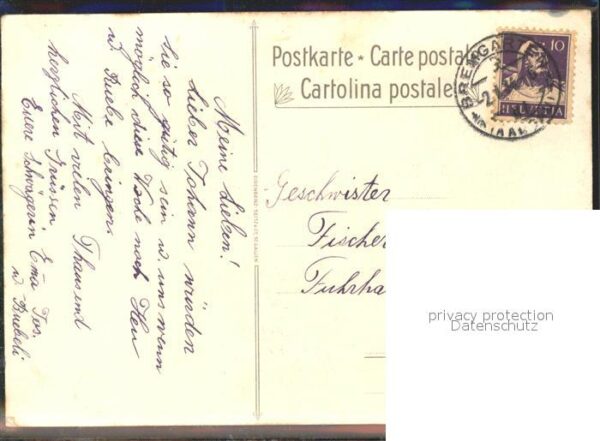 Postkarte • Carte postale
Cartolina postale
BREMGARTEN
(AARGAU)
10
HELVETIA
Meine Lieben!
Lieber Johann würden
Sie so gütig sein u. uns wenn
möglich diese Woche noch Heu
u. bringen
Mit vielen Thausend
herzlichen Grüssen
Euere Schwägerin Ema
u. Buebeli
Geschwister
Fischer
Fuhrha
privacy protection
Datenschutz